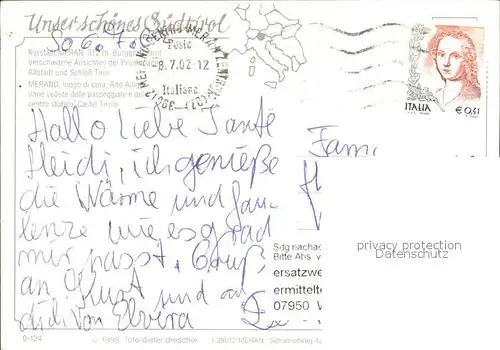 Unser schönes Südtirol
30.6.7.02
Kurstadt MERAN 
verschiedene Ansichten der
Altstadt und Schloß Tirol
MERANO, luogo di cura, Alto Adige
Varie vedute delle passeggiate e del
centro storico, Castel Tirolo
Poste
8.7.02-12
Italiane
ITALIA
€ 0,41
Hallo Liebe Tante
Heidi, ich genieße
die Wärme und fau-
lenze wie es grad
mir passt. Gruß
an Kurt und an
dich von Elvira
Fam
Sdg nachse
Bitte Abs. v
ersatzwe
ermittelte
07950 V
privacy protection
Datenschutz
0-124
© 1998 foto dieter drescher
I-39012 MERAN